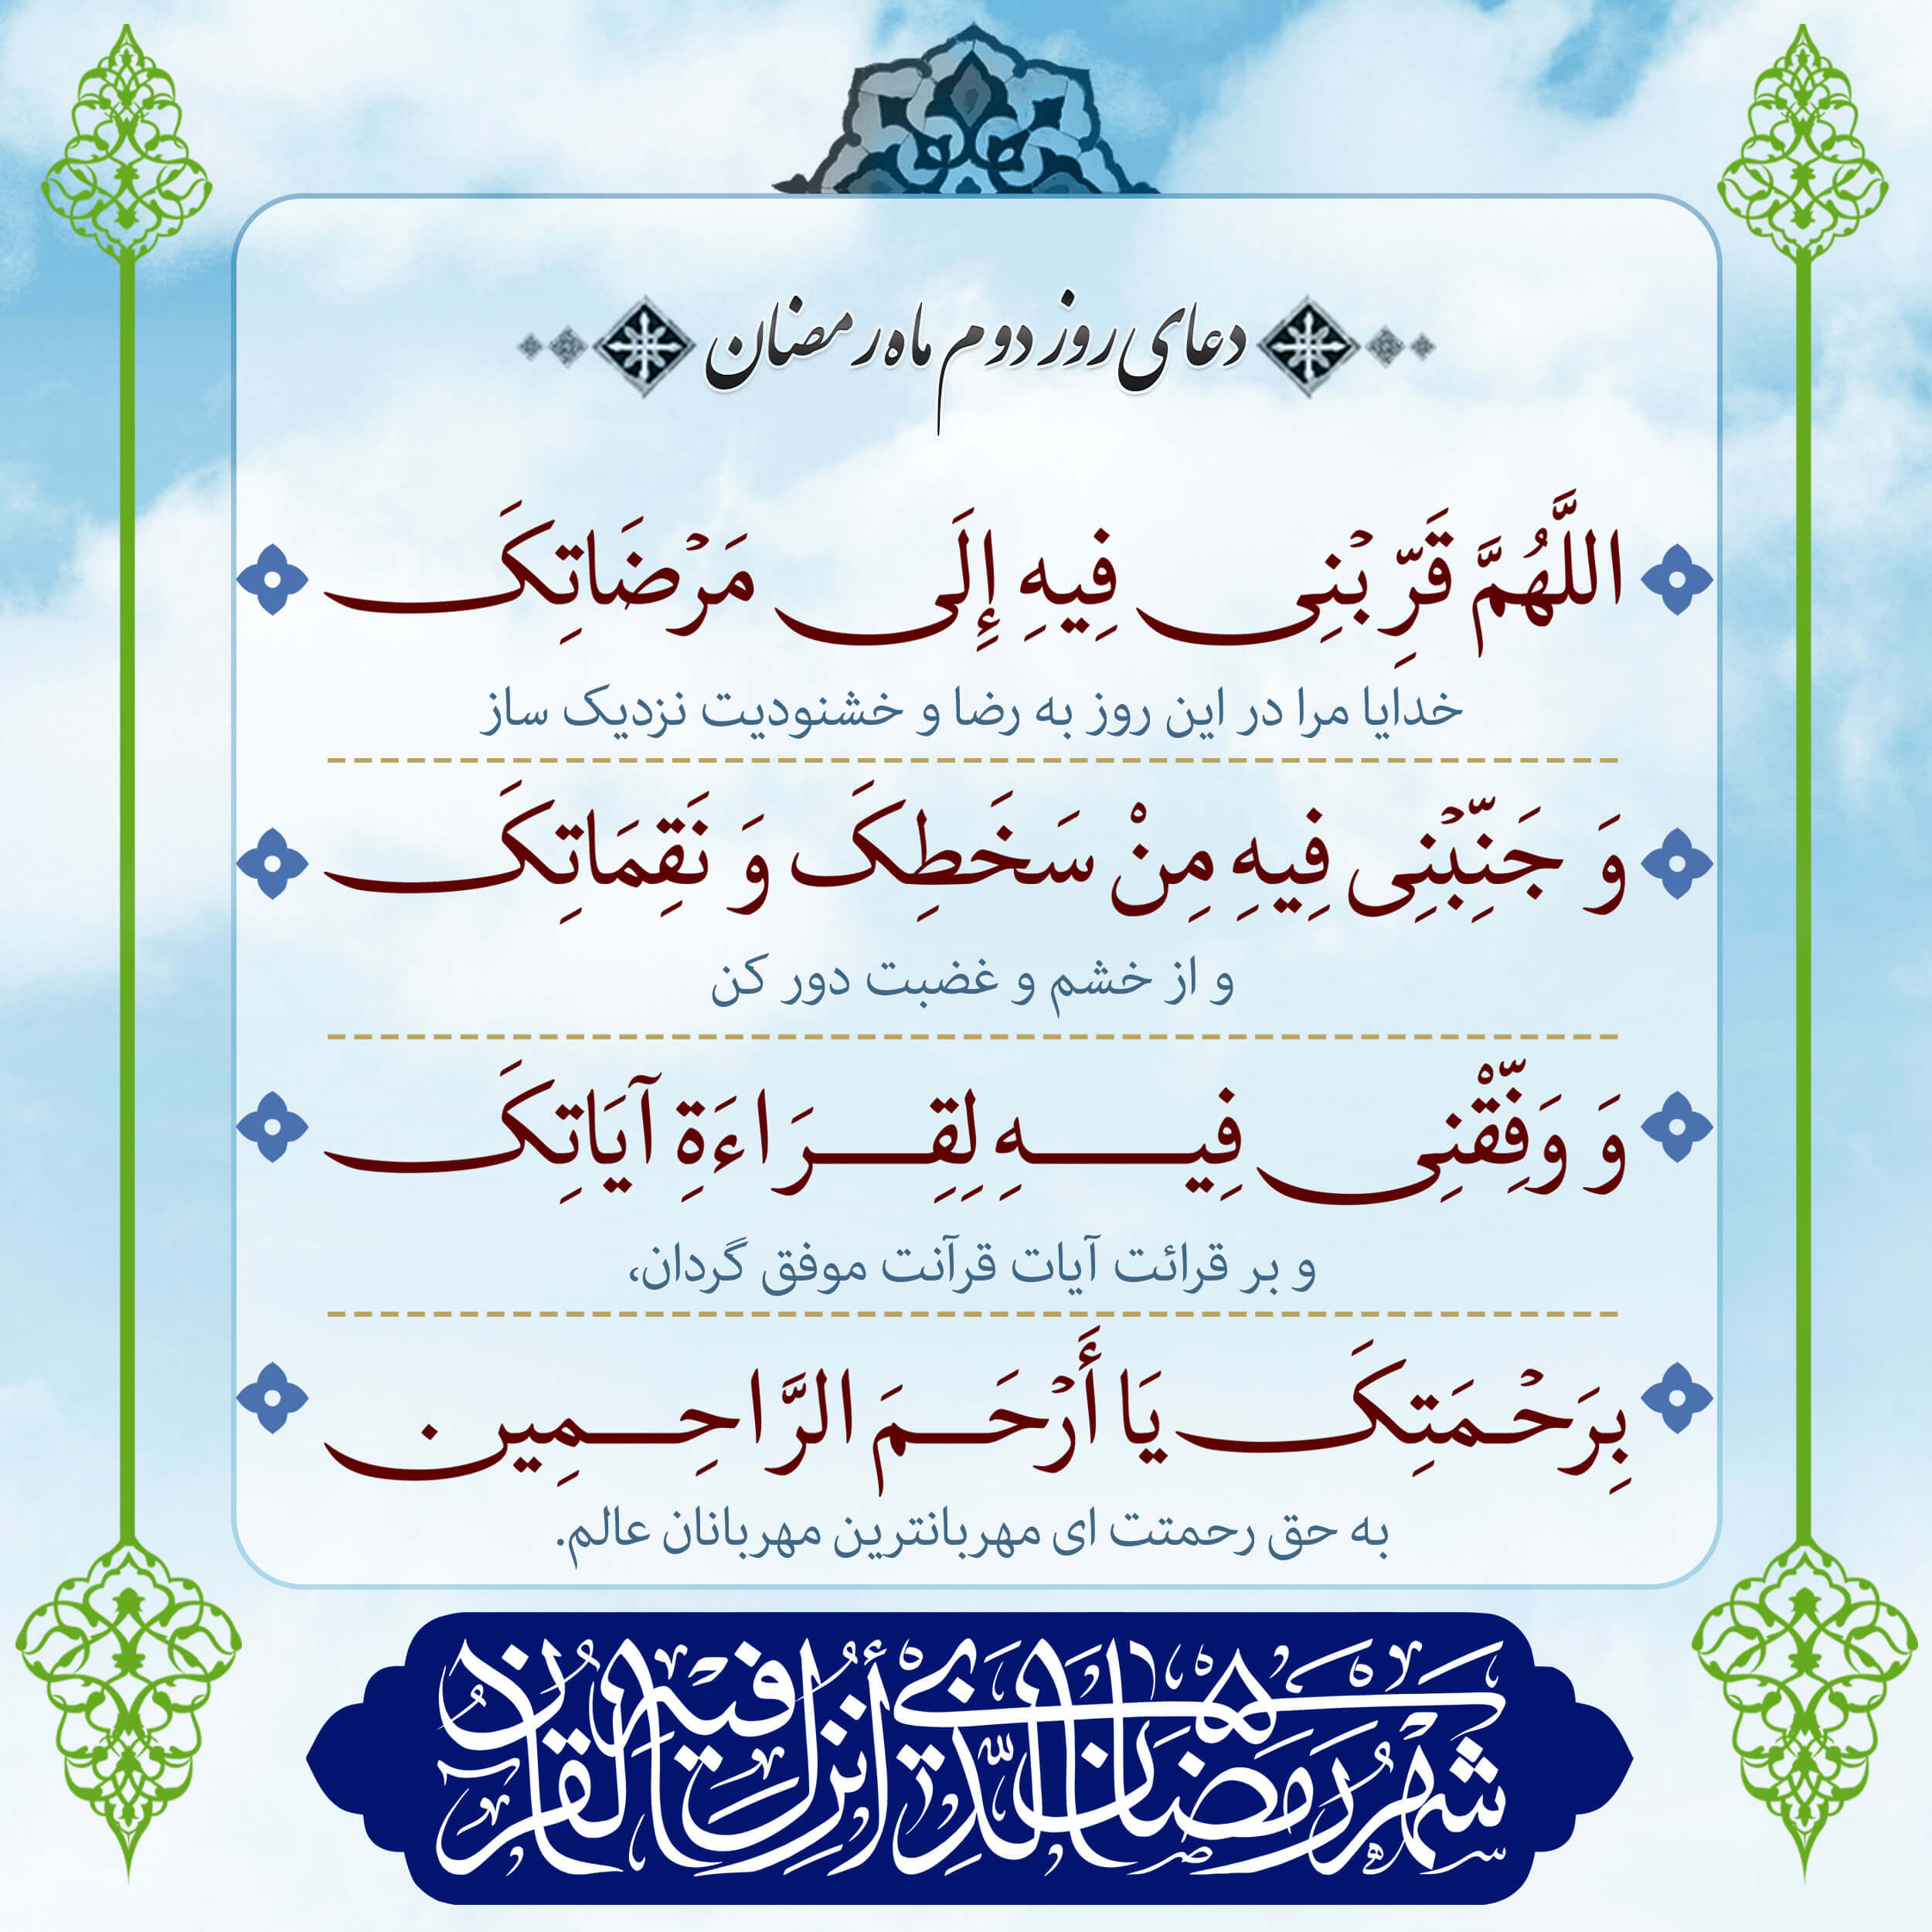 دعای روز دوم ماه رمضان
اللَّهُمَّ قَرِّبْنِی فِیهِ إِلَی مَرْضَاتِکَ
خدایا مرا در این روز به رضا و خشنودیت نزدیک ساز
وَ جَنِّبْنِی فِیهِ مِنْ سَخَطِکَ وَ نَقِمَاتِکَ
و از خشم و غضبت دور کن
وَ وَفِّقْنِی فِیهِ لِقِرَاءَةِ آیَاتِکَ
و بر قرائت آیات قرآنت موفق گردان،
بِرَحْمَتِکَ یَا أَرْحَمَ الرَّاحِمِین
به حق رحمتت ای مهربانترین مهربانان عالم.
شَهْرُ رَمَضَانَ الَّذِي أُنْزِلَ فِيهِ الْقُرْآنُ